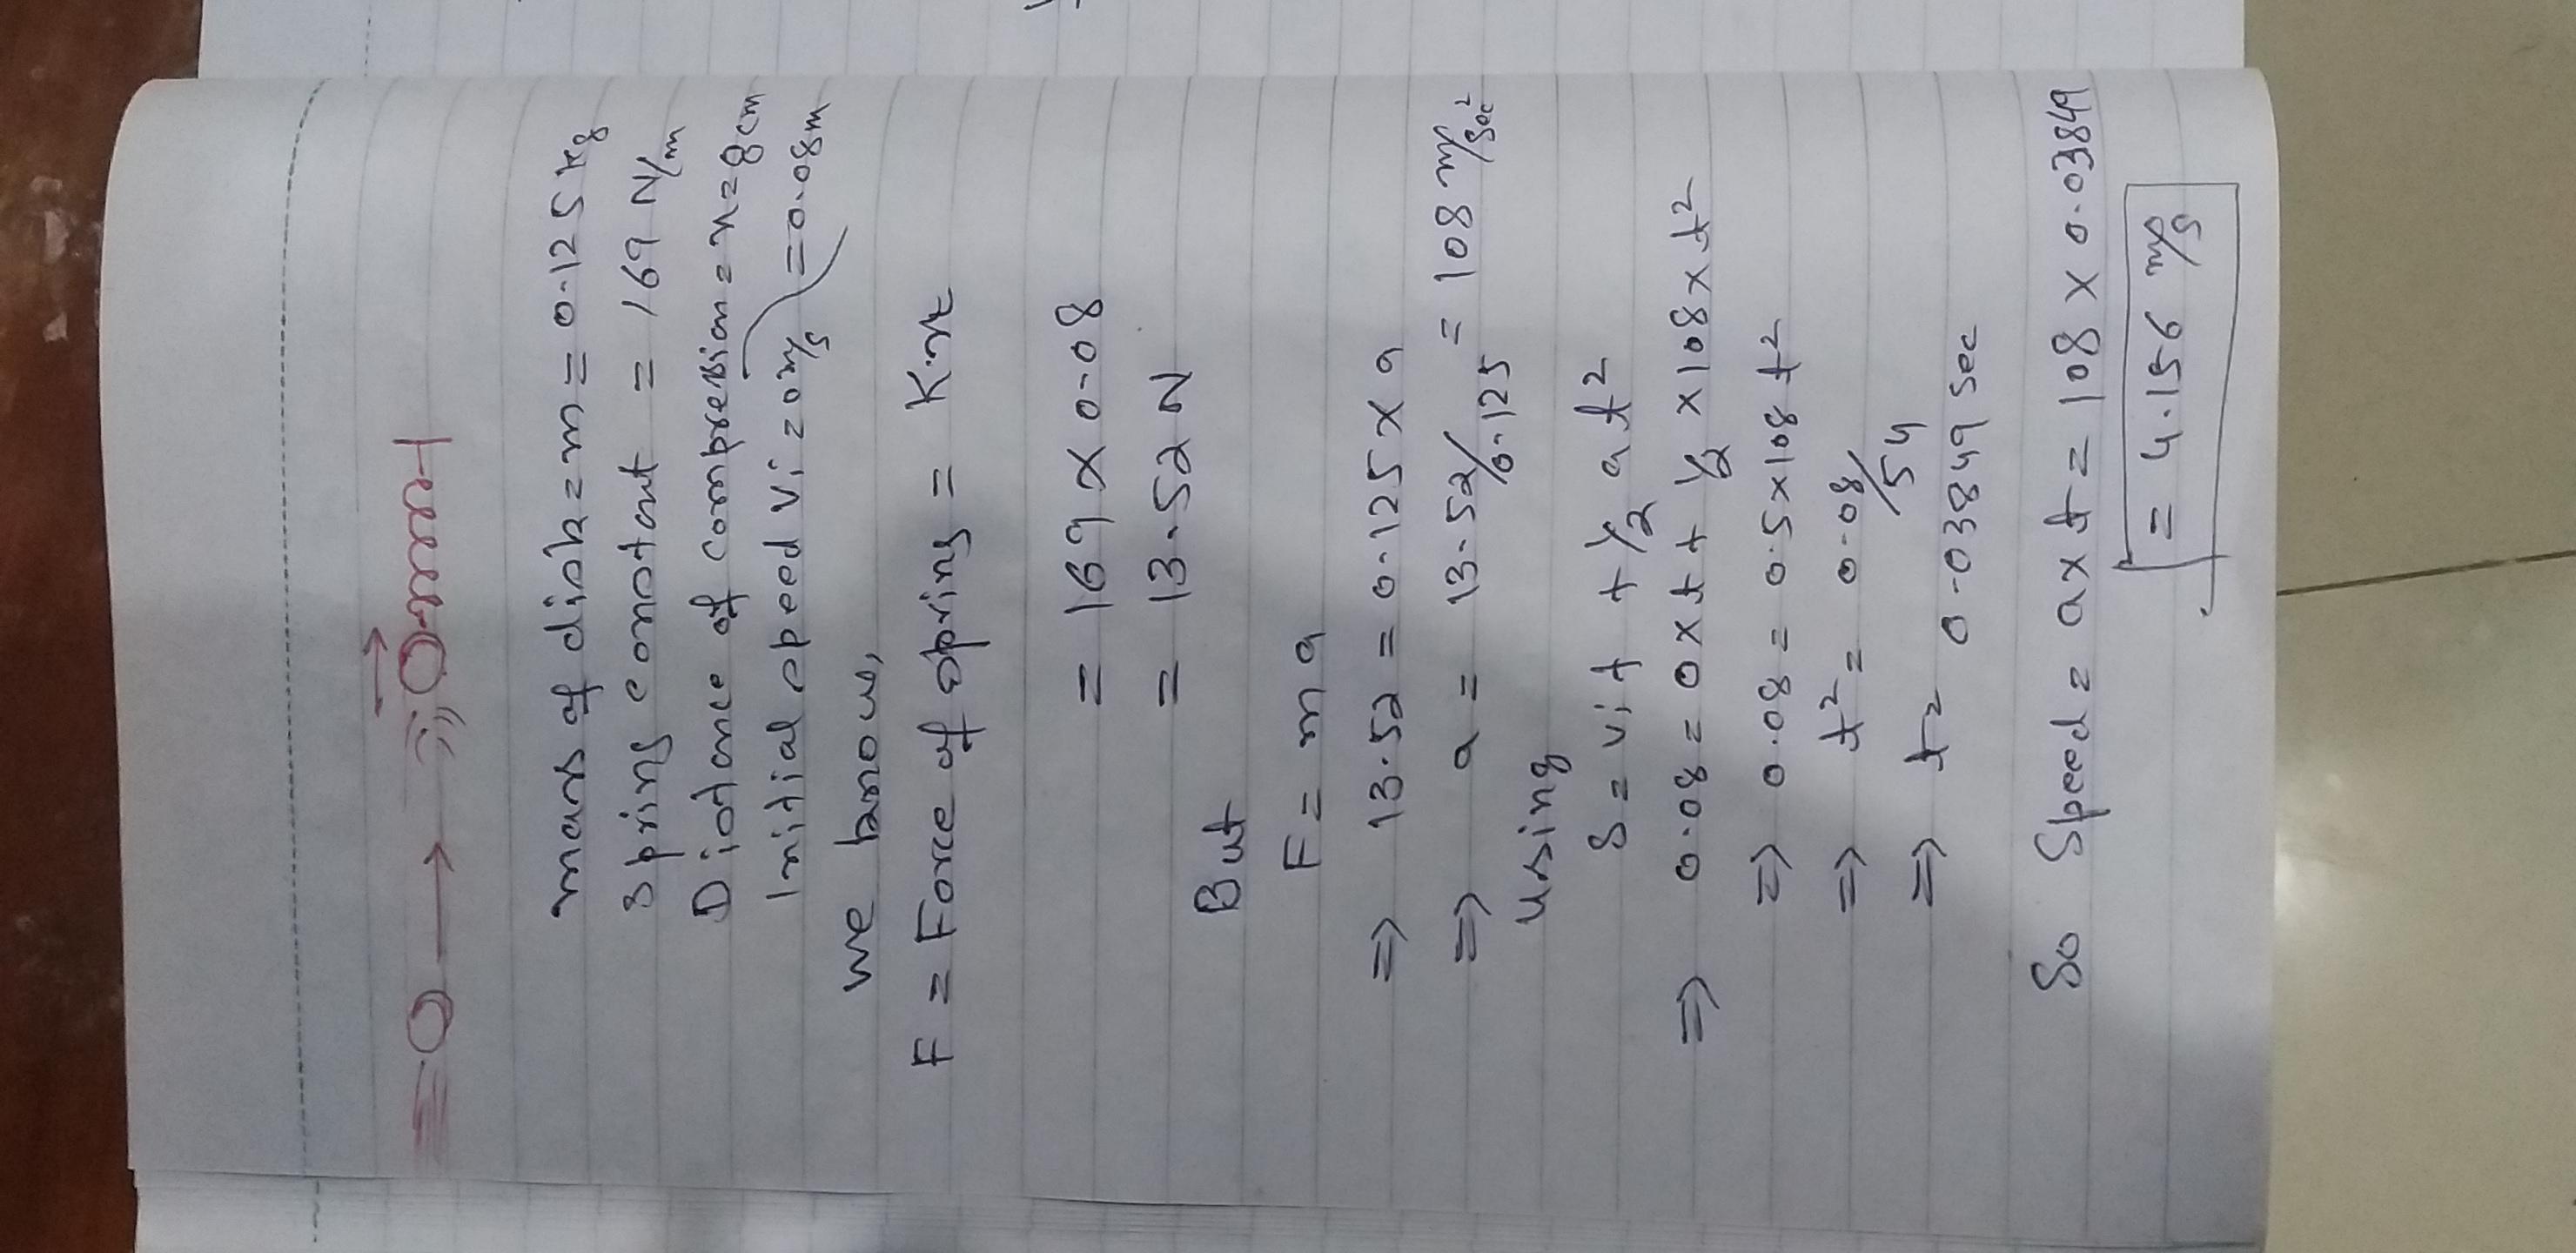 mass of disk = m = 0.125 kg
spring constant = 169 N/m
Distance of compression = x = 8cm
= 0.08m
Initial speed Vi = 0 m/s
we know,
F = Force of spring = K.x
= 169 x 0.08
= 13.52 N
But
F = ma
⇒ 13.52 = 0.125 x a
⇒ a = 13.52/0.125 = 108 m/sec²
Using
S = vit + 1/2 at²
⇒ 0.08 = 0xt + 1/2 x108xt²
⇒ 0.08 = 0.5x108 t²
⇒ t² = 0.08/54
⇒ t = 0.03849 sec
So Speed = axt = 108 x 0.03849
= 4.156 m/s